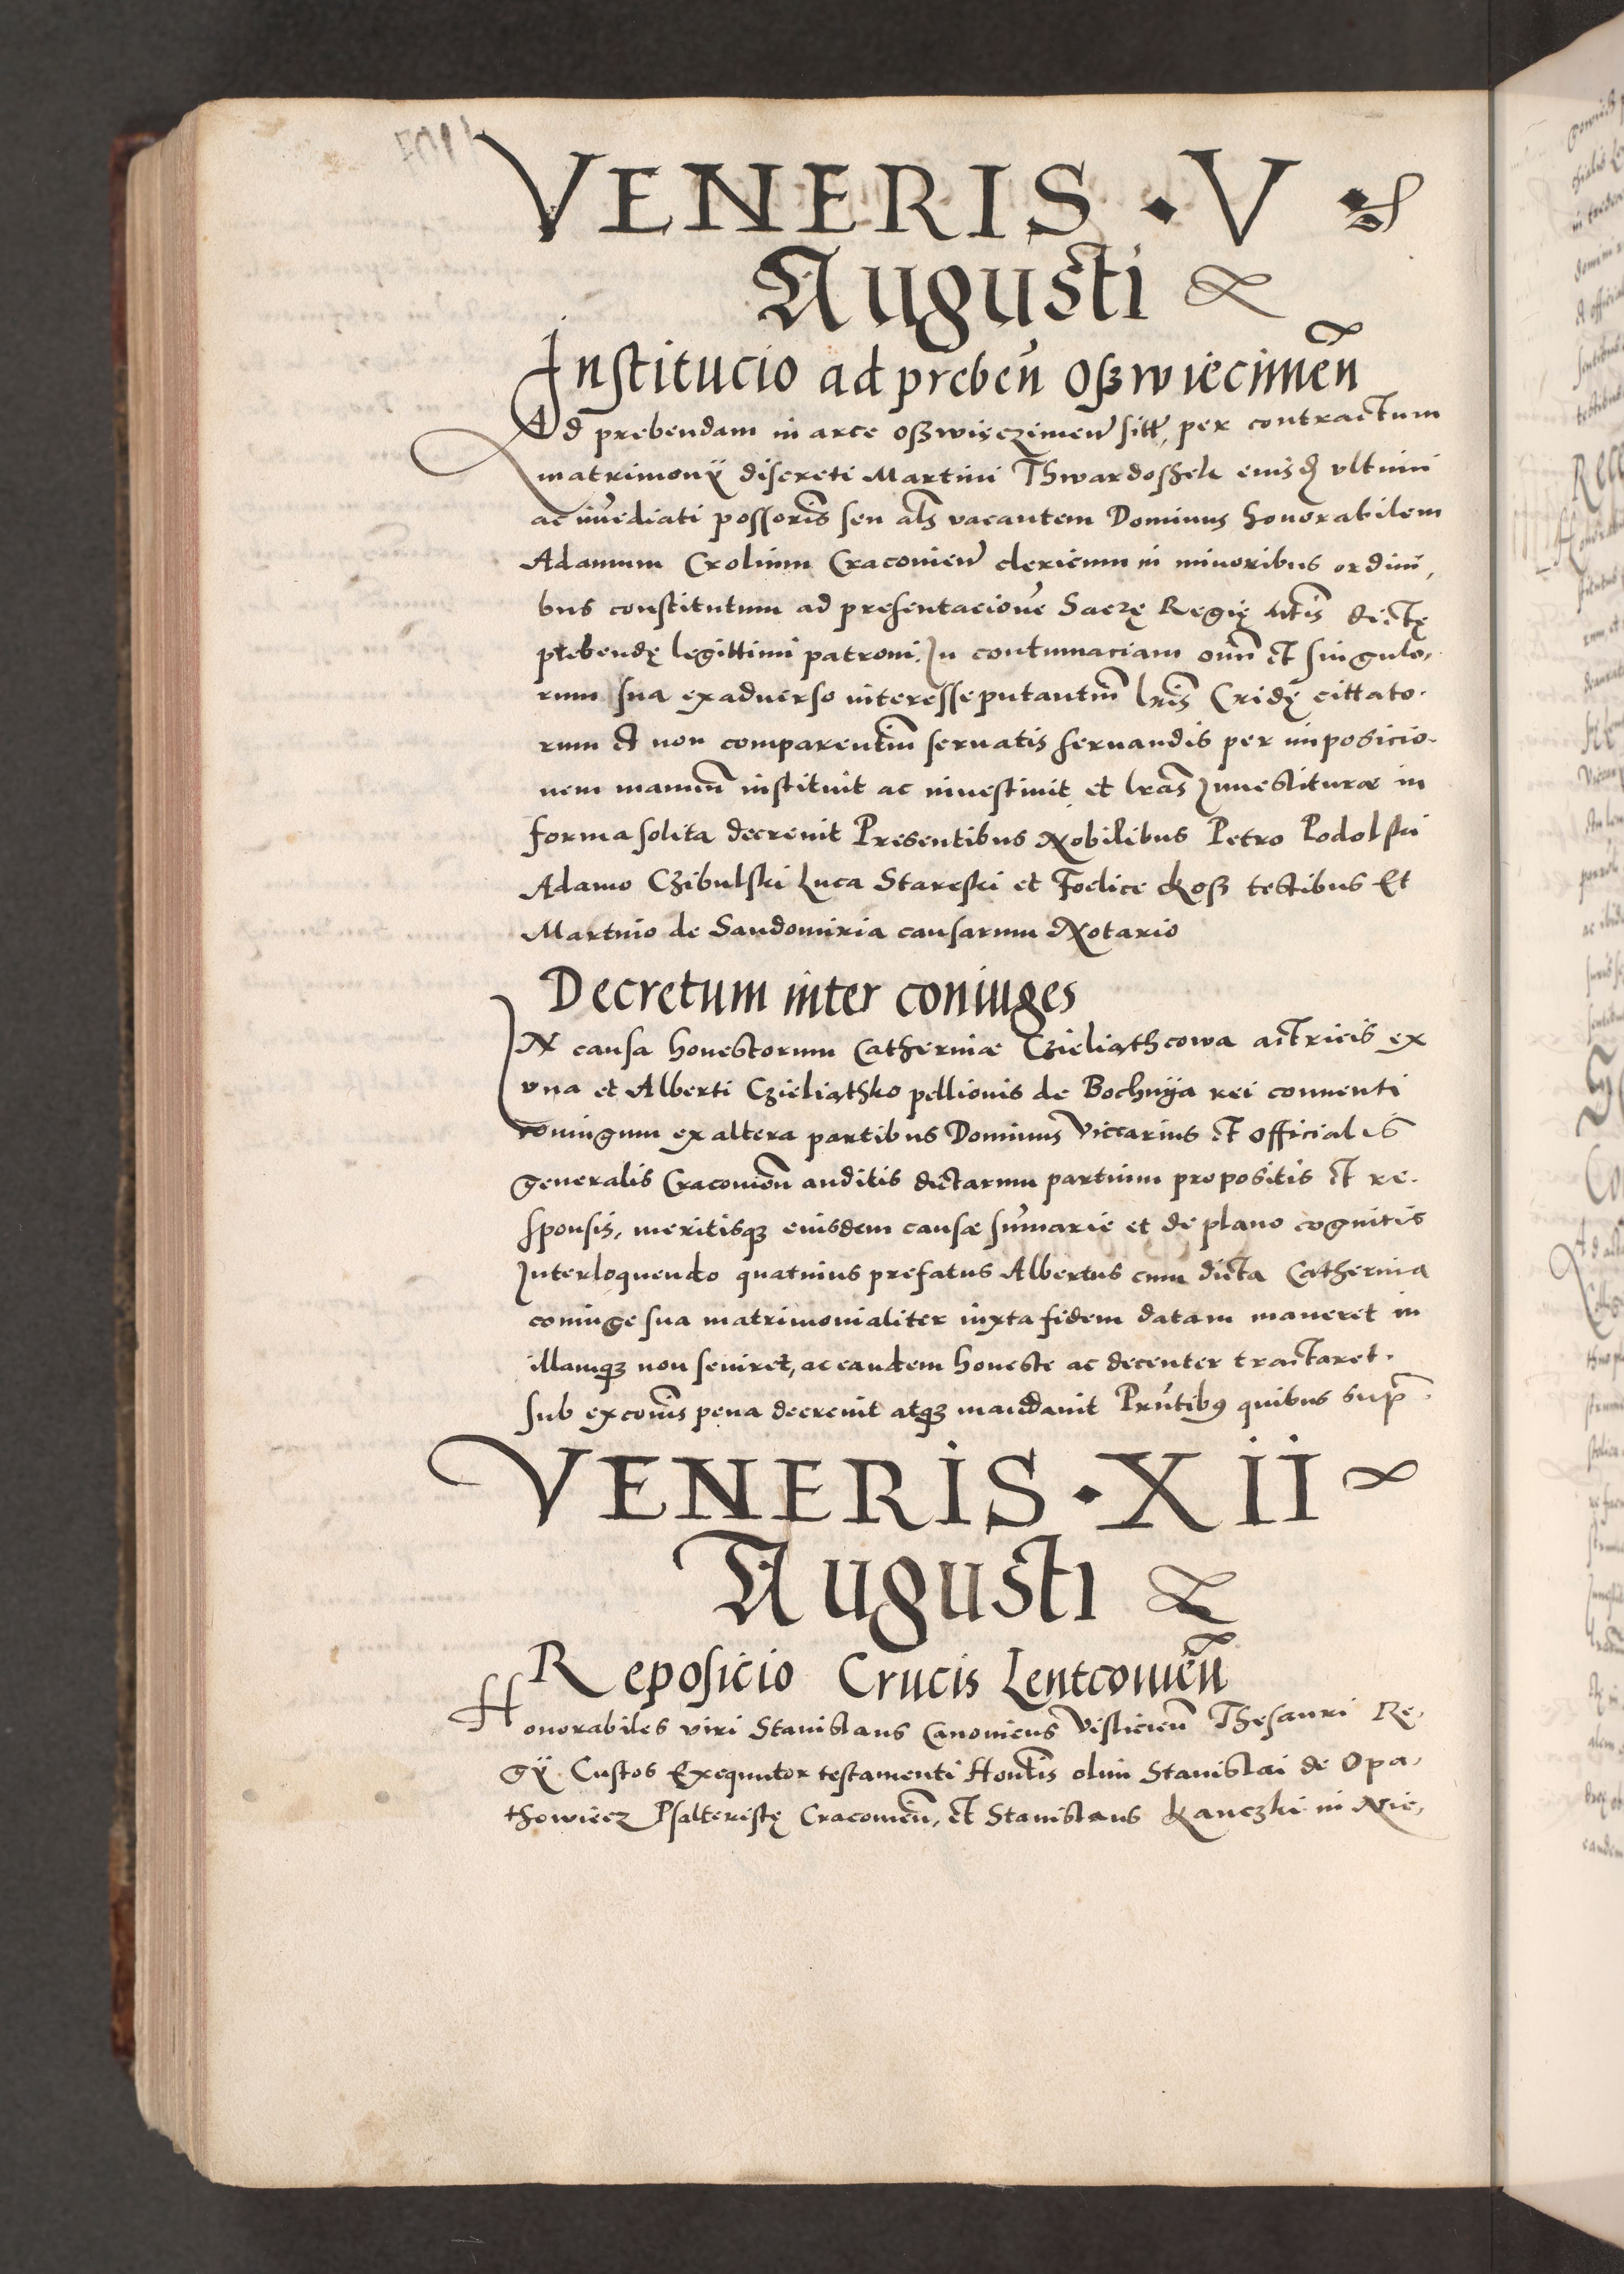 VENERIS · V
Augusti
Institucio ad preben̄ Osswiecimen̄
Ad prebendam in arce Osswięczimen̄ sitt̄, per contractum
matrimonÿ discreti Martini Thwardosszek eius ultimi
ac im̄ediati possoris̄ seu al̄s vacantem Dominus honorabilem
Adamum Crolium Cracovien̄ clericum in minoribus ordini,
bus constitutum ad presentacione̅ Sacrę Regię Mtis̄ dictę
prebendę legittimi patroni. In contumaciam om̄ et singulo,
rum sua exadverso interesse putantiu̅ lris̄ Cridę cittato-
rum et non comparentiu̅ servatis servandis per imposicio-
nem manuu̅ instituit ac investivit et lrās Investiturae in
forma solita decrevit Presentibus Nobilibus Petro Podolski
Adamo Czibulski Luca Stareski et Foelice Koss testibus Et
Martino de Sandomiria causarum Notario
Decretum inter coniuges
IN causa honestorum Catherinae Czieliąthcowa actricis ex
una et Alberti Czieliąthko pellionis de Bochnÿa rei conventi
coniugum ex altera partibus Dominus Viccarius et Officialis
generalis Cracovien̄ auditis dictarum partium propositis et re-
sponsis, meritisqꝫ eiusdem causae sum̄arie et de plano cognitis
Interloquendo quatinus prefatus Albertus cum dicta Catherina
coniuge sua matrimonialiter iuxta fidem datam maneret in
illamqꝫ non seviret, ac eandem honeste ac decenter tractaret.
sub excōnis pena decrevit atqꝫ mandavit Prn̄tibꝰ quibus sup̄
VENERIS · XII
Augusti
Reposicio Crucis Lentcovien̄
Honorabiles viri Stanislaus Canonicus Vislicien̄ Thesauri Re,
gÿ Custos Exequutor testamenti Hontis̄ olim Stanislai de Opa,
thowiecz Psalteristę Cracovien̄, et Stanislaus Kanczki in Nie,